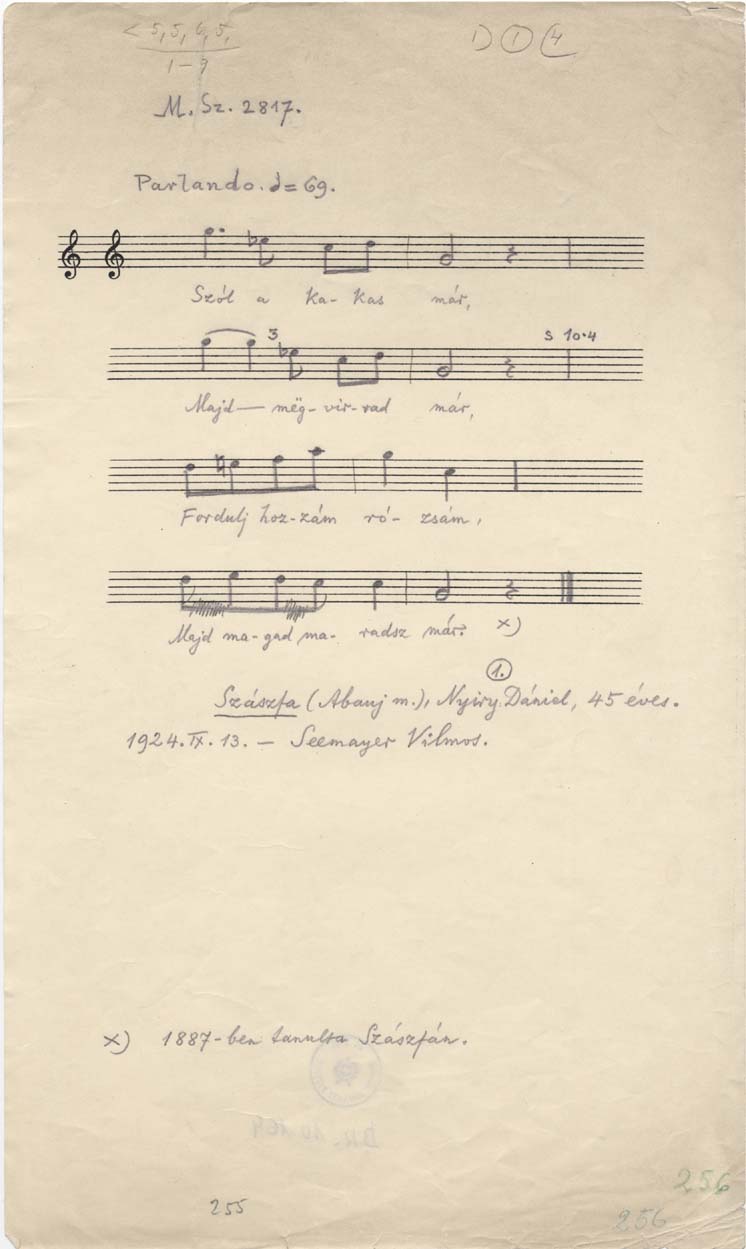 < 5, 5, 6, 5,
1 – 9
1) ① 4
M. Sz. 2817.
Parlando. = 69.
Szól a ka- kas már,
3 s 10·4
Majd— mëg- vir- rad már,
Fordulj hoz-zám ró- zsám,
Majd ma-gad ma- radsz már. x)
1.
Szászfa (Abauj m.), Nyiry Dániel, 45 éves.
1924. IX. 13. — Seemayer Vilmos.
x) 1887-ben tanulta Szászfán.
255
256
256